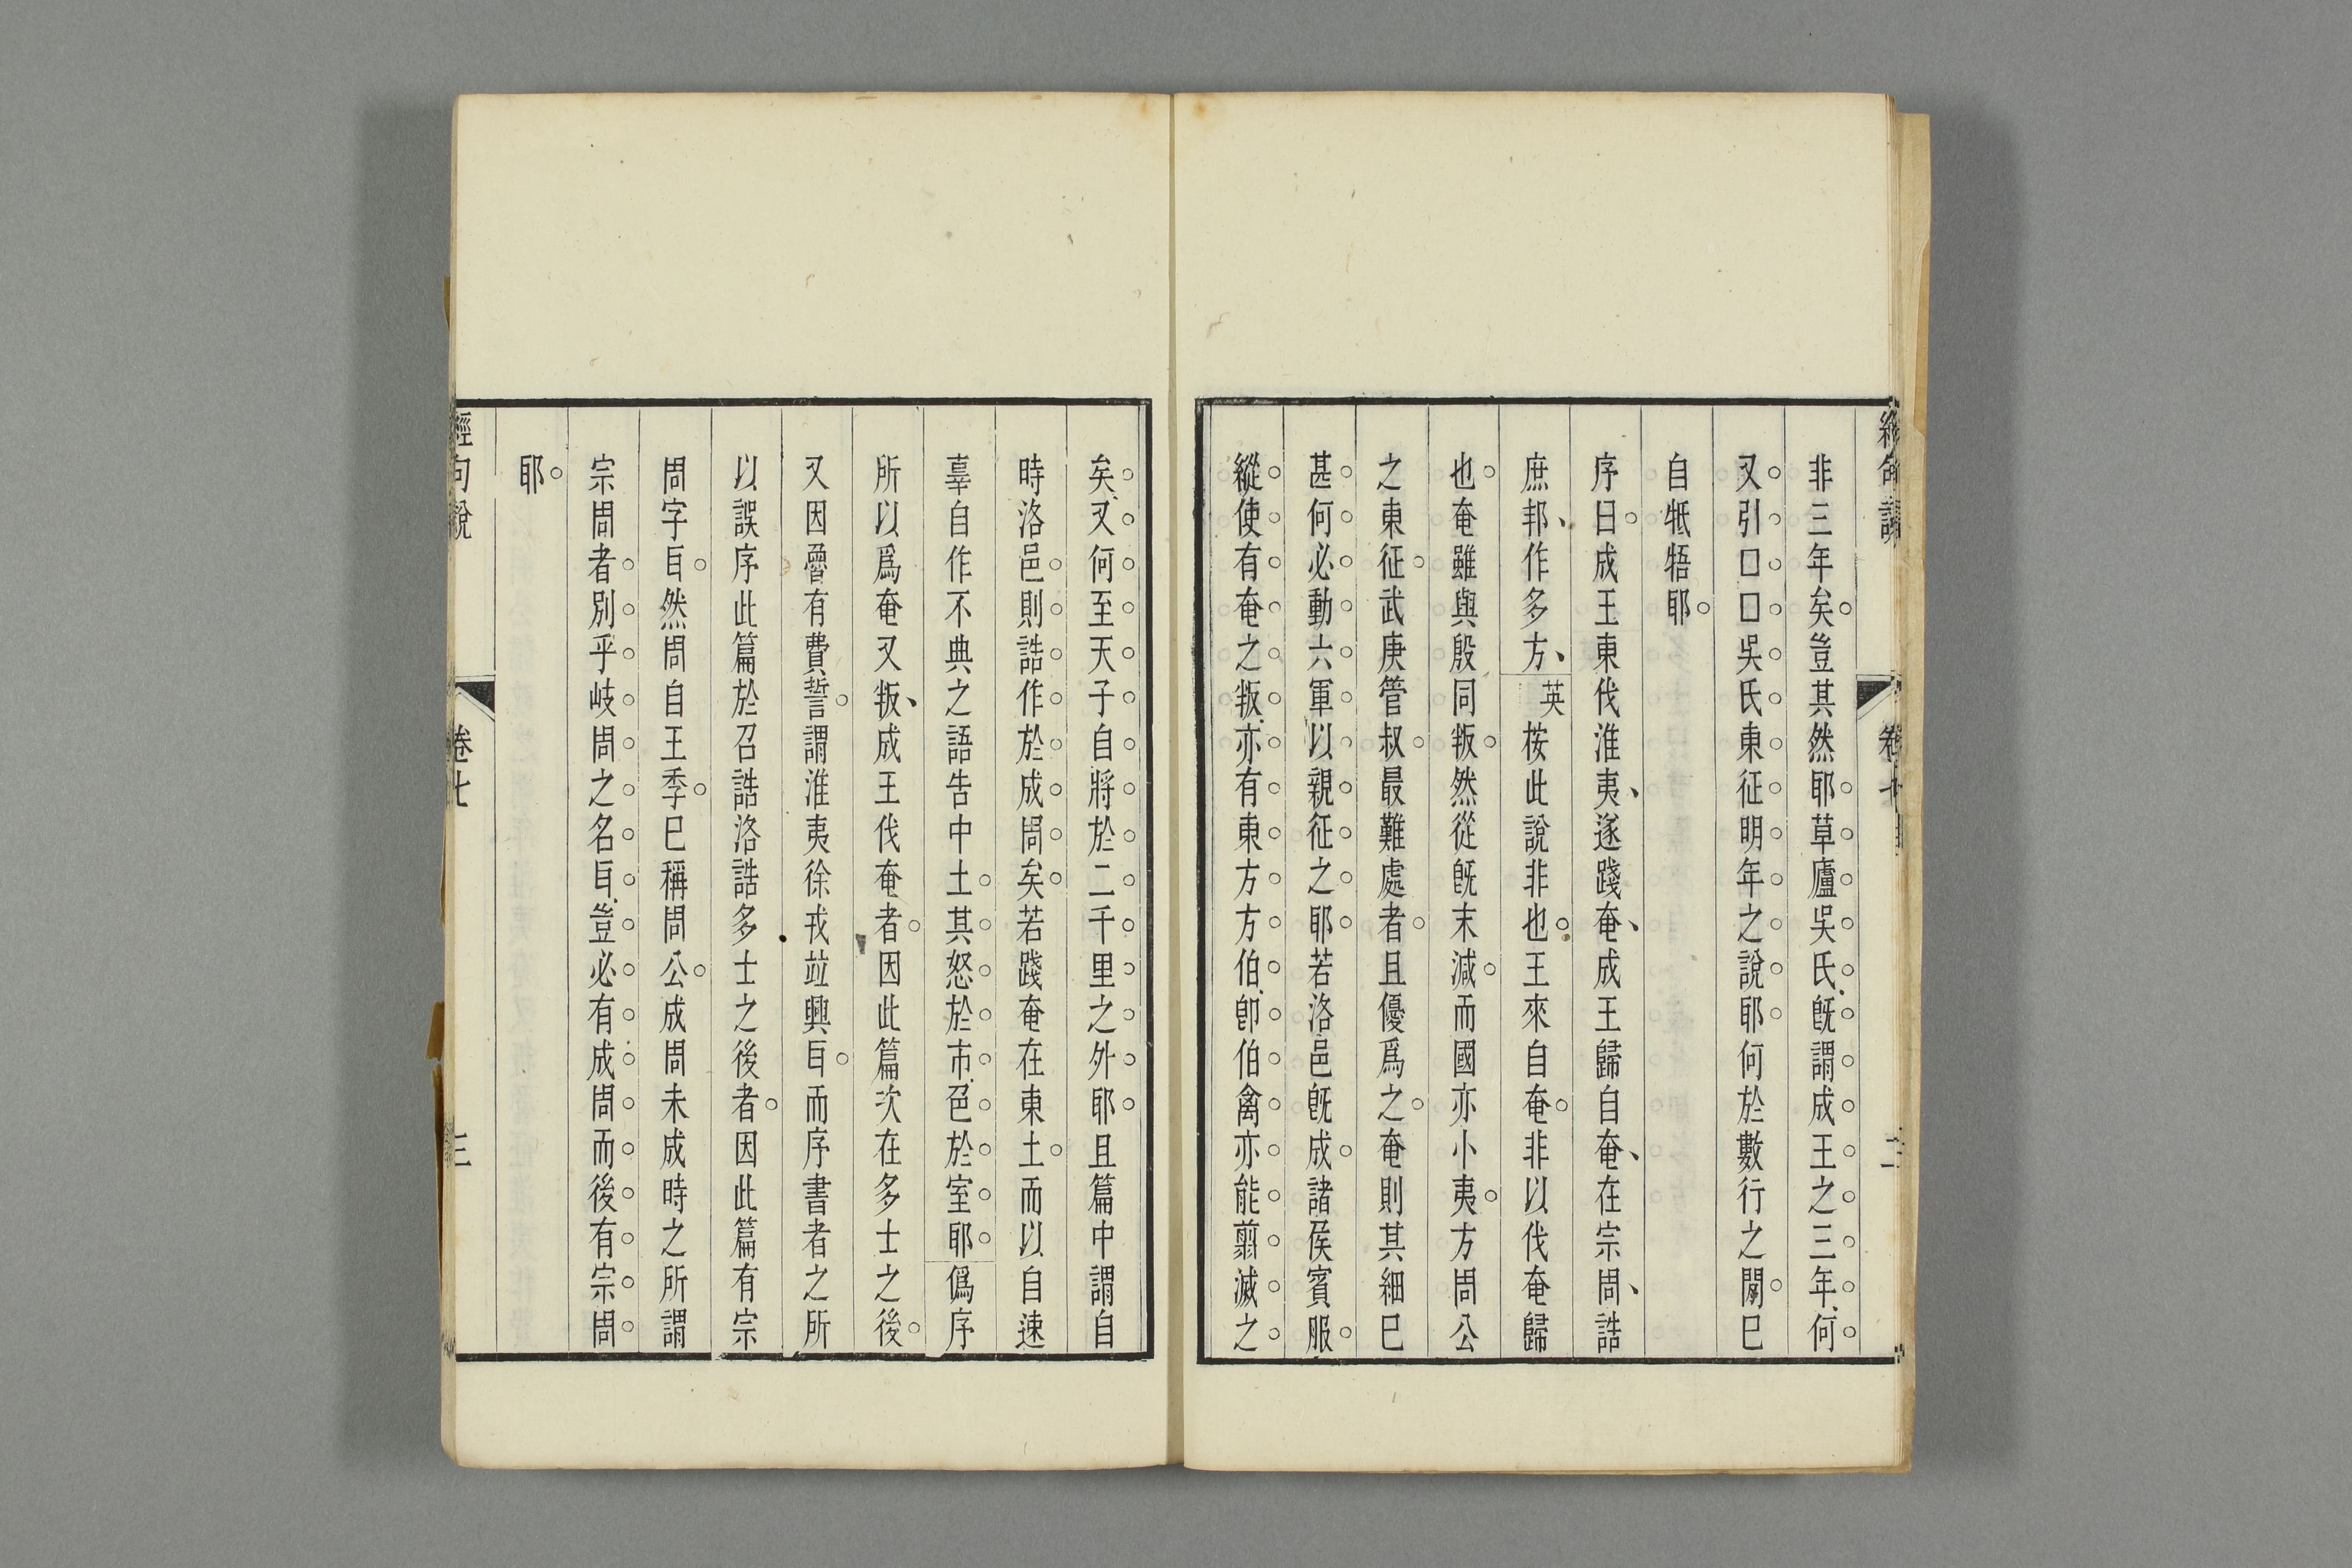 非三年矣豈其然耶草廬吳氏旣謂成王之三年何
又引口口吳氏東征明年之說耶何於數行之閒巳
自牴牾耶
序曰成王東伐淮夷遂踐奄成王歸自奄在宗周誥
庶邦作多方英按此說非也王來自奄非以伐奄歸
也奄雖與殷同叛然從旣末減而國亦小夷方周公
之東征武庚管叔最難處者且優爲之奄則其細巳
甚何必動六軍以親征之耶若洛邑旣成諸侯賓服
縱使有奄之叛亦有東方方伯卽伯禽亦能翦滅之
矣又何至天子自將於二千里之外耶且篇中謂自
時洛邑則誥作於成周矣若踐奄在東土而以自速
辜自作不典之語告中土其怒於市色於室耶僞序
所以爲奄又叛成王伐奄者因此篇次在多士之後
又因魯有費誓謂淮夷徐戎竝興㠯而序書者之所
以誤序此篇於召誥洛誥多士之後者因此篇有宗
周字㠯然周自王季巳稱周公成周未成時之所謂
宗周者別乎岐周之名㠯豈必有成周而後有宗周
耶
經句說
卷七
三